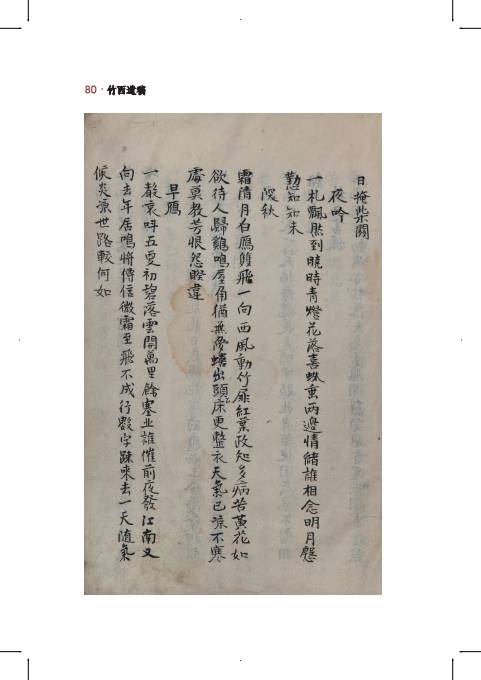 80 · 竹西遺稿
日掩柴關
夜吟
一札飄然到曉時青燈花落喜蛛垂兩邊情緒誰相念明月慇
懃知知未
深秋
霜清月白鴈雙飛一向西風動竹扉紅葉政知多病苦黃花如
欲待人歸鷄鳴屋角猶無寐蟾出頭床更整衣天氣已凉不寒
處莫教芳恨怨睽違
早鴈
一聲哀呌五更初碧落雲開萬里餘塞北誰催前夜發江南又
向去年居鳴將傳信微霜至飛不成行數字踈來去一天隨氣
候炎凉世路較何如